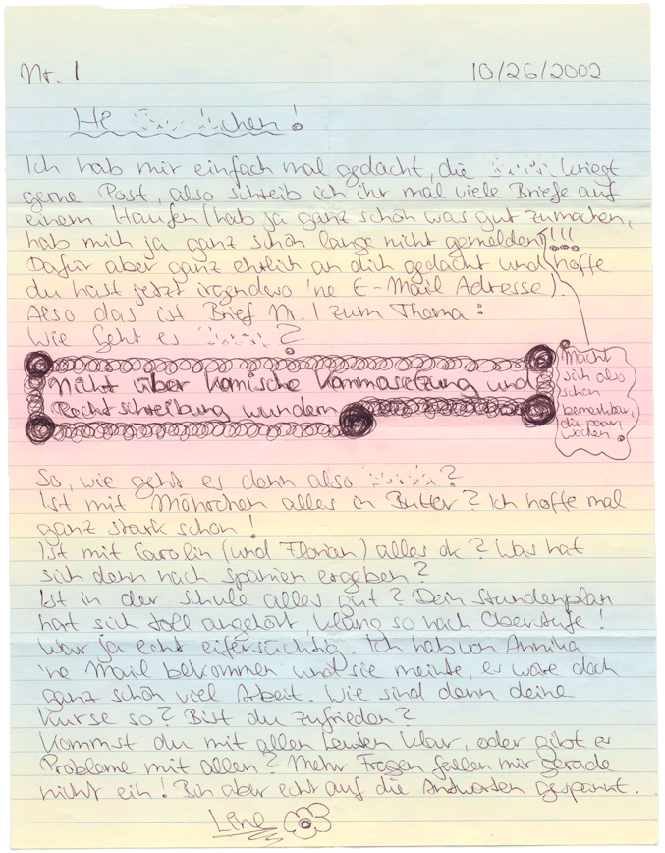 Nr. 1
10/26/2002
Hi chen!
Ich hab mir einfach mal gedacht, die kriegt
gerne Post, also schreib ich ihr mal viele Briefe auf
einem Haufen (hab ja ganz schön was gut zumachen,
hab mich ja ganz schön lange nicht gemelden!!!
Dafür aber ganz ehrlich an dich gedacht und hoffe
du hast jetzt irgendwo 'ne E-Mail Adresse).
Also das ist Brief Nr. 1 zum Thema:
Wie geht es ?
Nicht über komische Kommasetzung und
Rechtschreibung wundern
Macht
sich also
schon
bemerkbar,
die paar
Wochen.
So, wie geht es denn also ?
Ist mit Möhrchen alles in Butter? Ich hoffe mal
ganz stark schon!
Ist mit Carolin (und Florian) alles ok? Was hat
sich denn nach Spanien ergeben?
Ist in der Schule alles gut? Dein Stundenplan
hört sich toll angehört, klang so nach Oberstufe!
War ja echt eifersüchtig. Ich hab von Annika
'ne Mail bekommen und sie meinte, es wäre doch
ganz schön viel Arbeit. Wie sind denn deine
Kurse so? Bist du zufrieden?
Kommst du mit allen Leuten klar, oder gibt es
Probleme mit allen? Mehr Fragen fallen mir gerade
nicht ein! Bin aber echt auf die Antworten gespannt.
Line